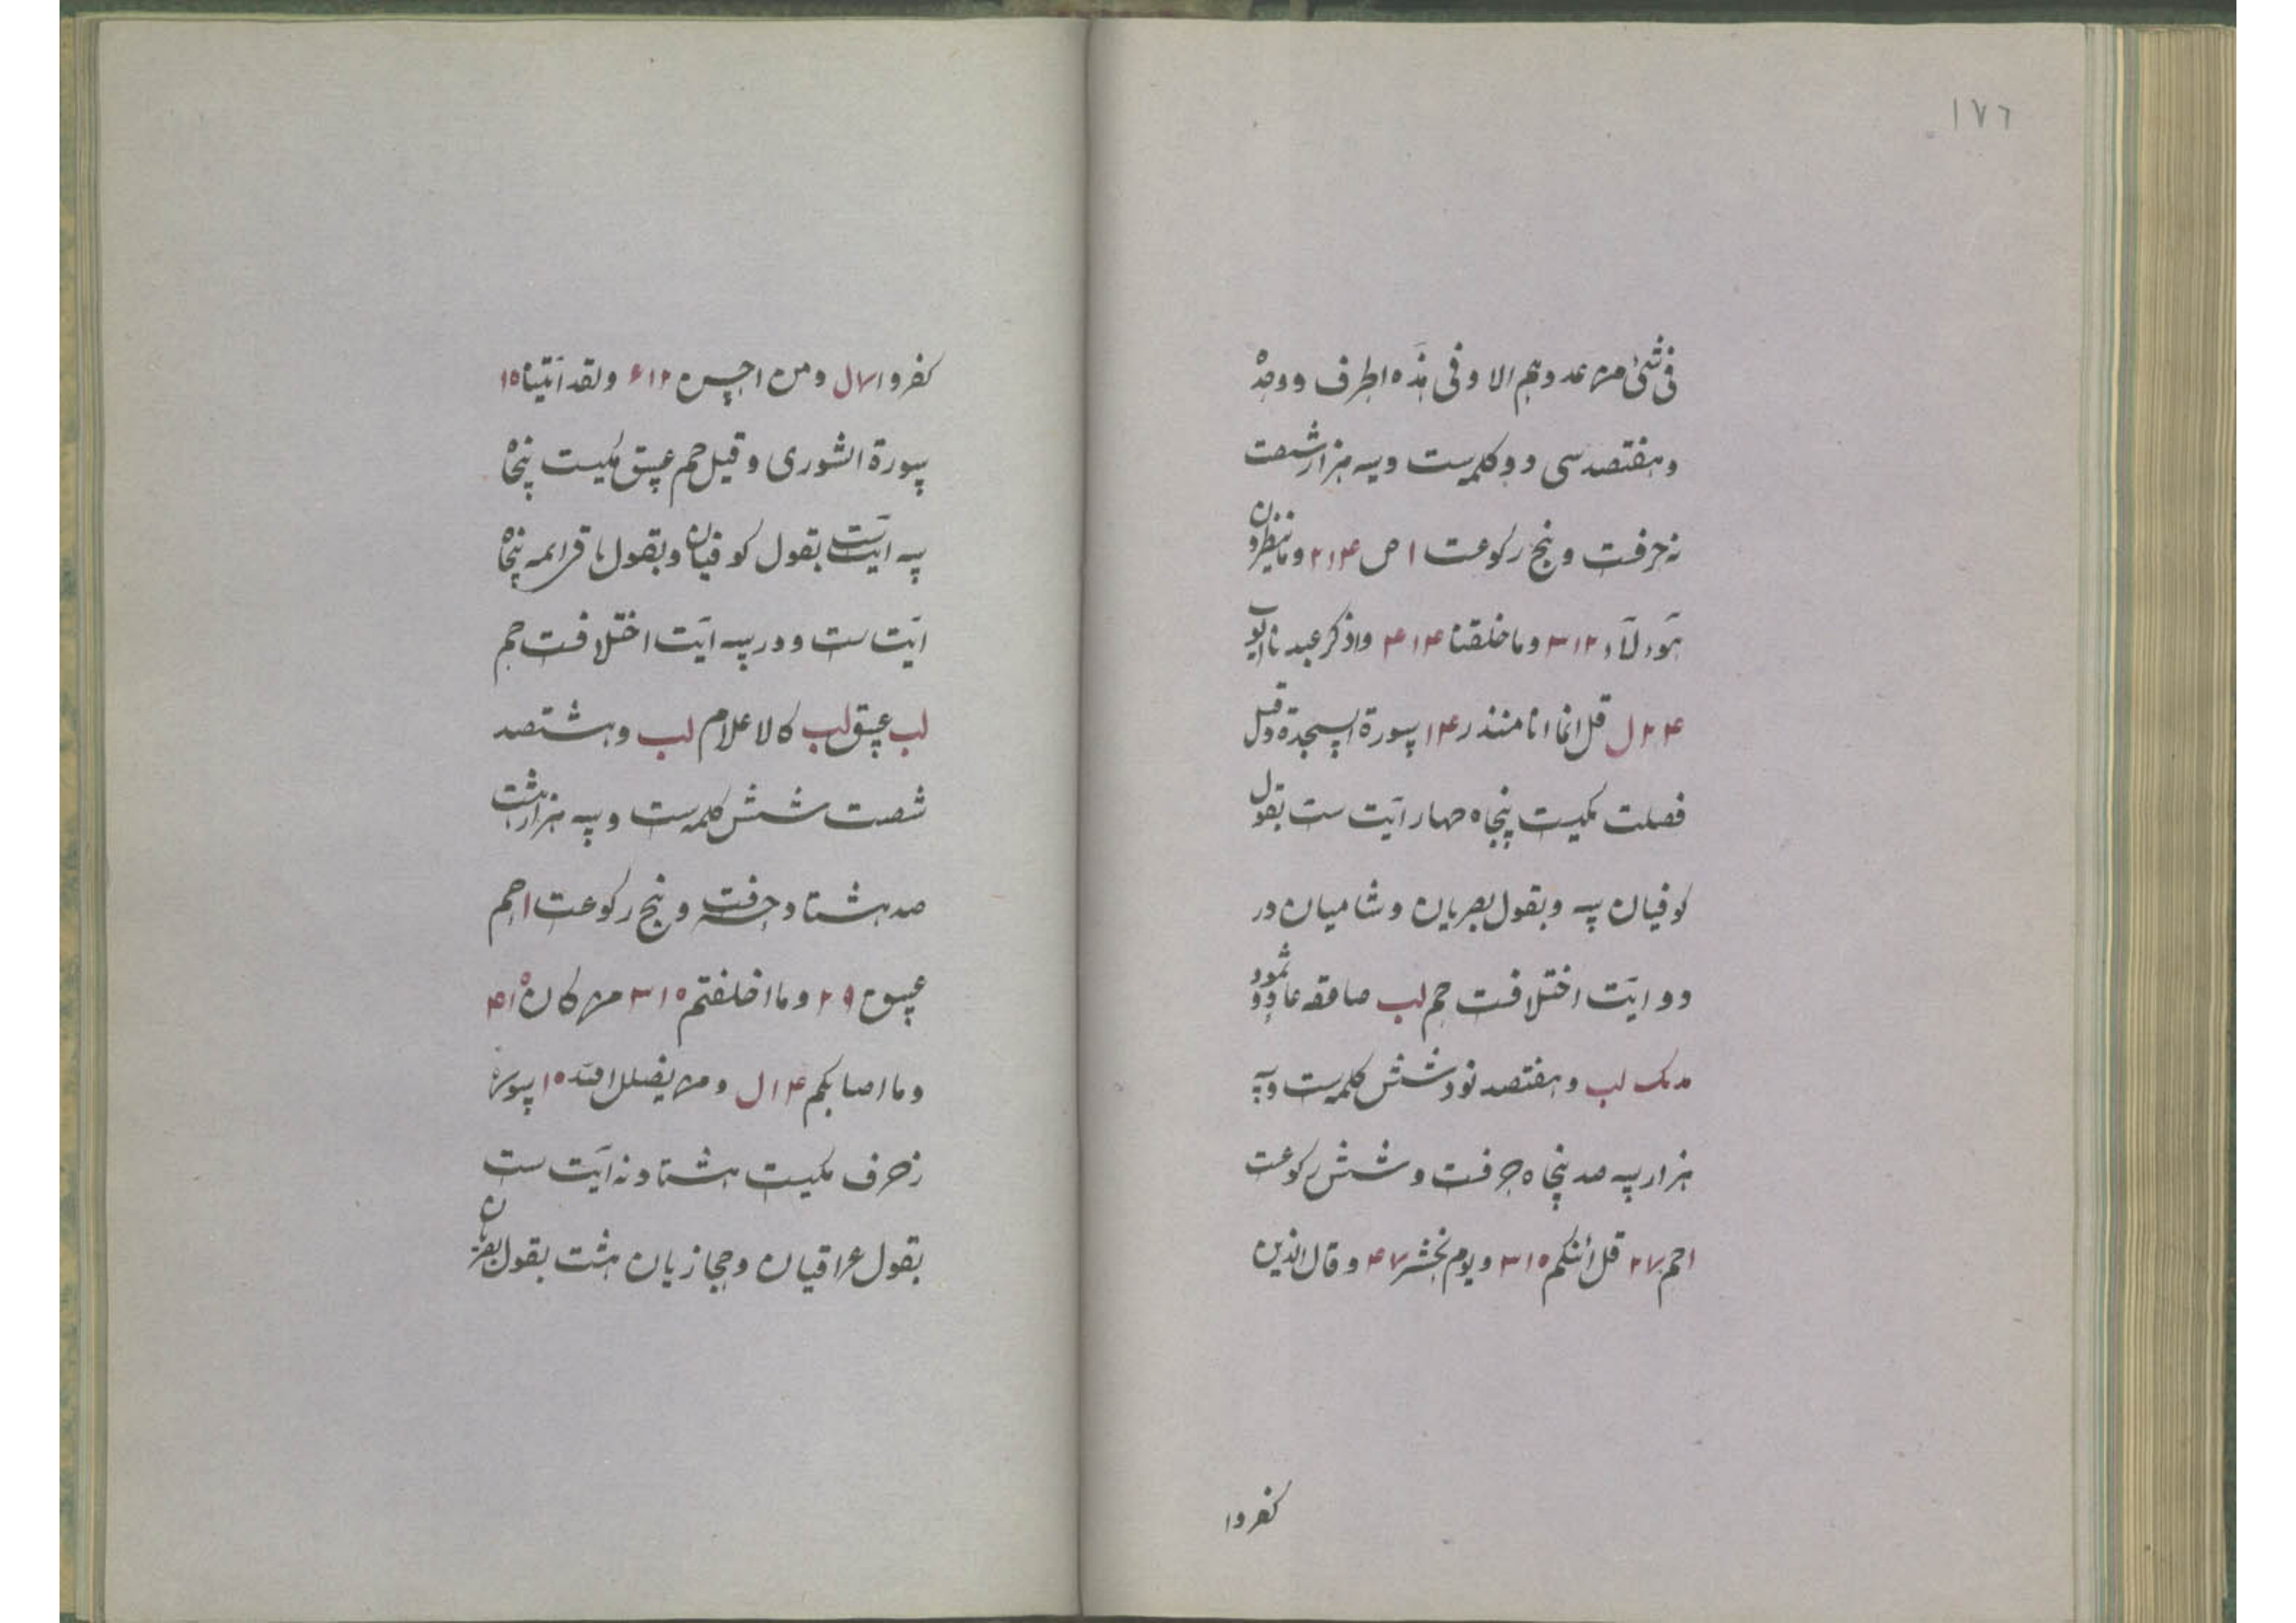 ١٧٦
فی شیٔ من عددهم الا و فی هذه الطرف ووحده
و هفتصد سی دو کلمه ست و سه هزار شصت
نه حرفست و پنج رکوعست ا ص ۲۱۴ و ما ینظرون
هؤلاء ۳۱۲ و ما خلقنا ۴۱۴ واذکر عبدنا ایوب
۲۴ ل قل انما انا منذر ۱۴ سورة السجدة وقیل
فصلت مکیست پنجاه چهار آیت ست بقول
کوفیان سه و بقول بصریان و شامیان در
دو آیت اختلافست حم لب صاعقه عاد و ثمود
مدک لب و هفتصد نود شش کلمه ست و سه
هزار سه صد پنجاه حرفست و شش رکوعست
ا حم ۲۷ قل ائنکم ۳۱۵ و یوم یحشر ۴۷ و قال الذین
کفروا
کفروا ۷ ل و من احسن ۶۱۲ ولقد آتینا ۱۵
سورة الشوری و قیل حم عسق مکیست پنجاه
سه آیت ست بقول کوفیان و بقول باقی ائمه پنجاه
آیت ست و در سه آیت اختلافست حم
لب عسق لب کالاعلام لب و هشتصد
شصت شش کلمه ست و سه هزار هشت
صد هشتاد حرفست و پنج رکوعست ا حم
عسق ۲۹ و ما اختلفتم ۳۱۵ من کان ۴۱۵
و ما اصابکم ۱۴ ل و من یضلل الله ۱۵ سورة
زخرف مکیست هشتاد نه آیت ست
بقول عراقیان و حجازیان هشت بقول بصریان